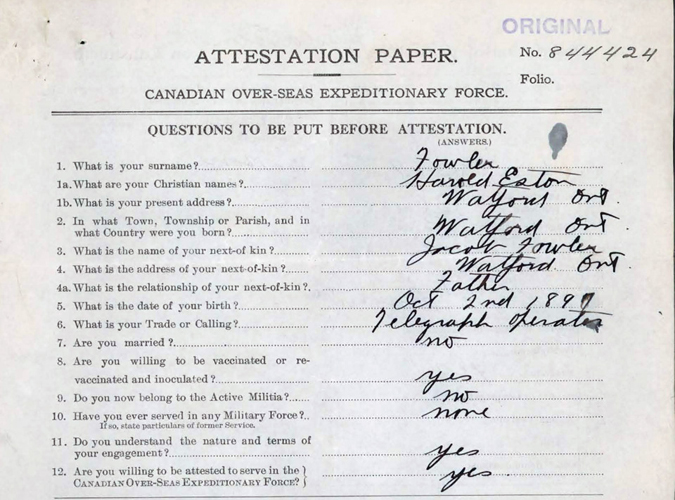 ORIGINAL
ATTESTATION PAPER. No. 844424
Folio.
CANADIAN OVER-SEAS EXPEDITIONARY FORCE.
QUESTIONS TO BE PUT BEFORE ATTESTATION.
(ANSWERS.)
1. What is your surname? Fowler
1a. What are your Christian names? Harold Eston
1b. What is your present address? Watford Ont.
2. In what Town, Township or Parish, and in
what Country were you born? Watford Ont.
3. What is the name of your next-of-kin? Jacob Fowler
4. What is the address of your next-of-kin? Watford Ont.
4a. What is the relationship of your next-of-kin? Father
5. What is the date of your birth? Oct 2nd 1897
6. What is your Trade or Calling? Telegraph operator
7. Are you married? no
8. Are you willing to be vaccinated or re-
vaccinated and inoculated? yes
9. Do you now belong to the Active Militia? no
10. Have you ever served in any Military Force? none
If so, state particulars of former Service.
11. Do you understand the nature and terms of
your engagement? yes
12. Are you willing to be attested to serve in the
CANADIAN OVER-SEAS EXPEDITIONARY FORCE? yes